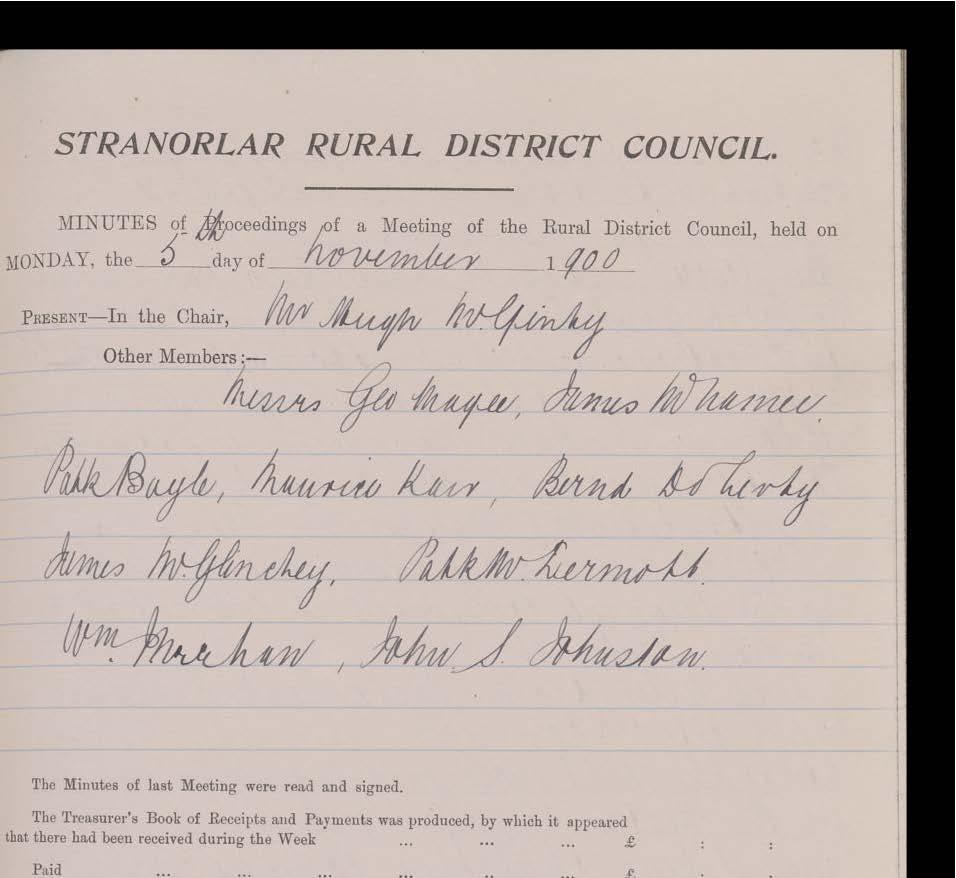 STRANORLAR RURAL DISTRICT COUNCIL.
MINUTES of Proceedings of a Meeting of the Rural District Council, held on
MONDAY, the 5th day of November 1900
PRESENT—In the Chair, Mr Hugh McGinty
Other Members:—
Messrs Geo Magee, James McNamee.
Patk Boyle, Maurice Kerr, Bernd Doherty
James McGlinchey, Patk McDermott.
Wm. Meehan, John S. Johnston.
The Minutes of last Meeting were read and signed.
The Treasurer's Book of Receipts and Payments was produced, by which it appeared
that there had been received during the Week ... ... ... £ : :
Paid ... ... ... ... .. ... £